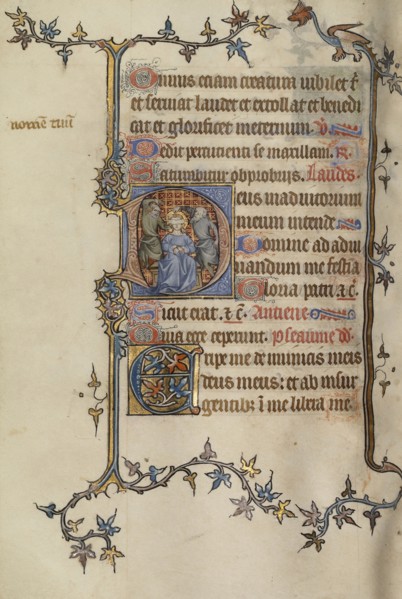 Omnis etiam creatum visibile t̄
et seruat laudet et extollat et benedi
cat et glorificet meternum. V
Dedit percutienti se maxillam. R.
Saturabitur obprobrijs. Laudes.
Deus in adiutorium
meum intende
Domine ad adiu
uandum me festia
Gloria patri ⁊ c̄.
Sicut erat. ⁊ c̄. Antiene
Quia ece ceperunt. pseaume dd
Eripe me de inimicis meis
deus meus: et ab insur
gentibꝫ ī me libera me.